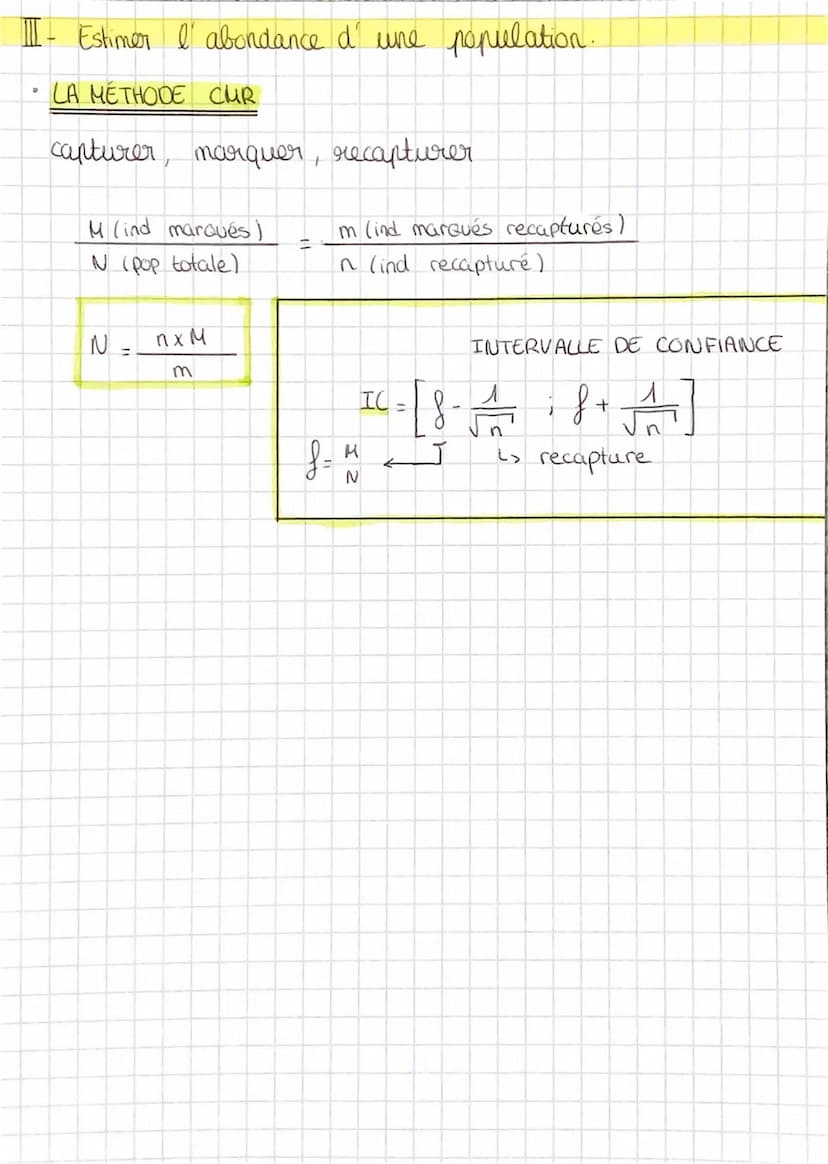 III - Estimer l'abondance d'une population.
• LA MÉTHODE CMR
capturer, marquer, recapturer
M (ind marqués) / N (pop totale) = m (ind marqués recapturés) / n (ind recapturé)
N = n x M / m
INTERVALLE DE CONFIANCE
IC = [f - 1/√n ; f + 1/√n]
f = M/N ← ↳ recapture